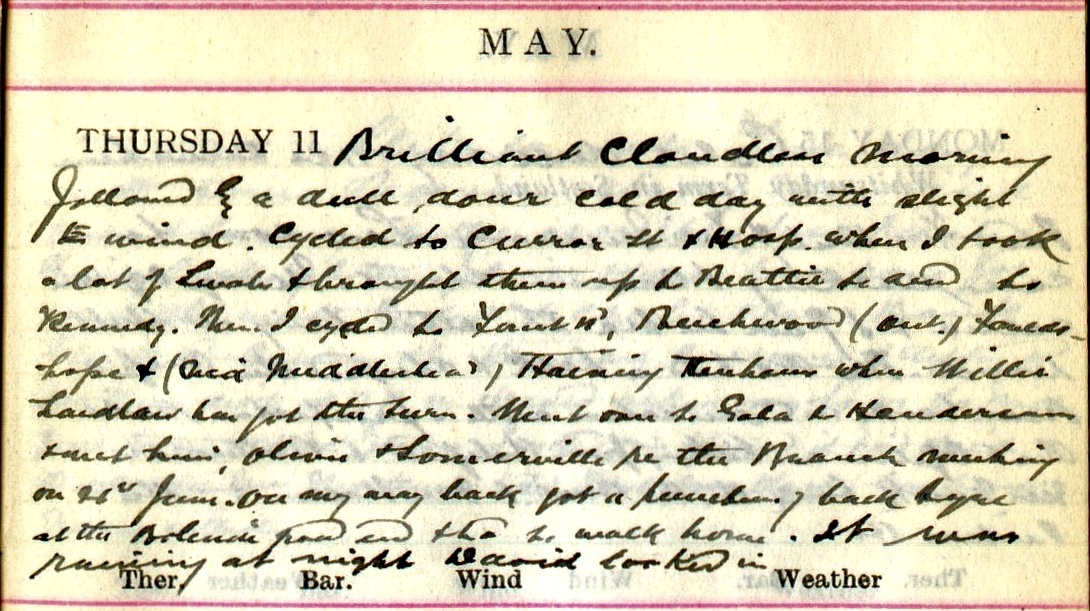 MAY.
THURSDAY 11 Brilliant Cloudless morning
followed by a dull dour cold day with slight
E wind. Cycled to Curror St & Hosp. when I took
a lot of & brought them up to Beattie to and to
Kennedy. Then I cycled to Beechwood (out.) Faulds-
hope & (via Middlestead) Haining when Willie
Laidlaw has got the turn. Went over to Gala to Henderson
& met him, Olivier & Somerville re the Branch meeting
on 21st June. On my way back got a puncture of back tyre
at the road end & had to walk home. It was
raining at night David looked in
Ther. Bar. Wind Weather